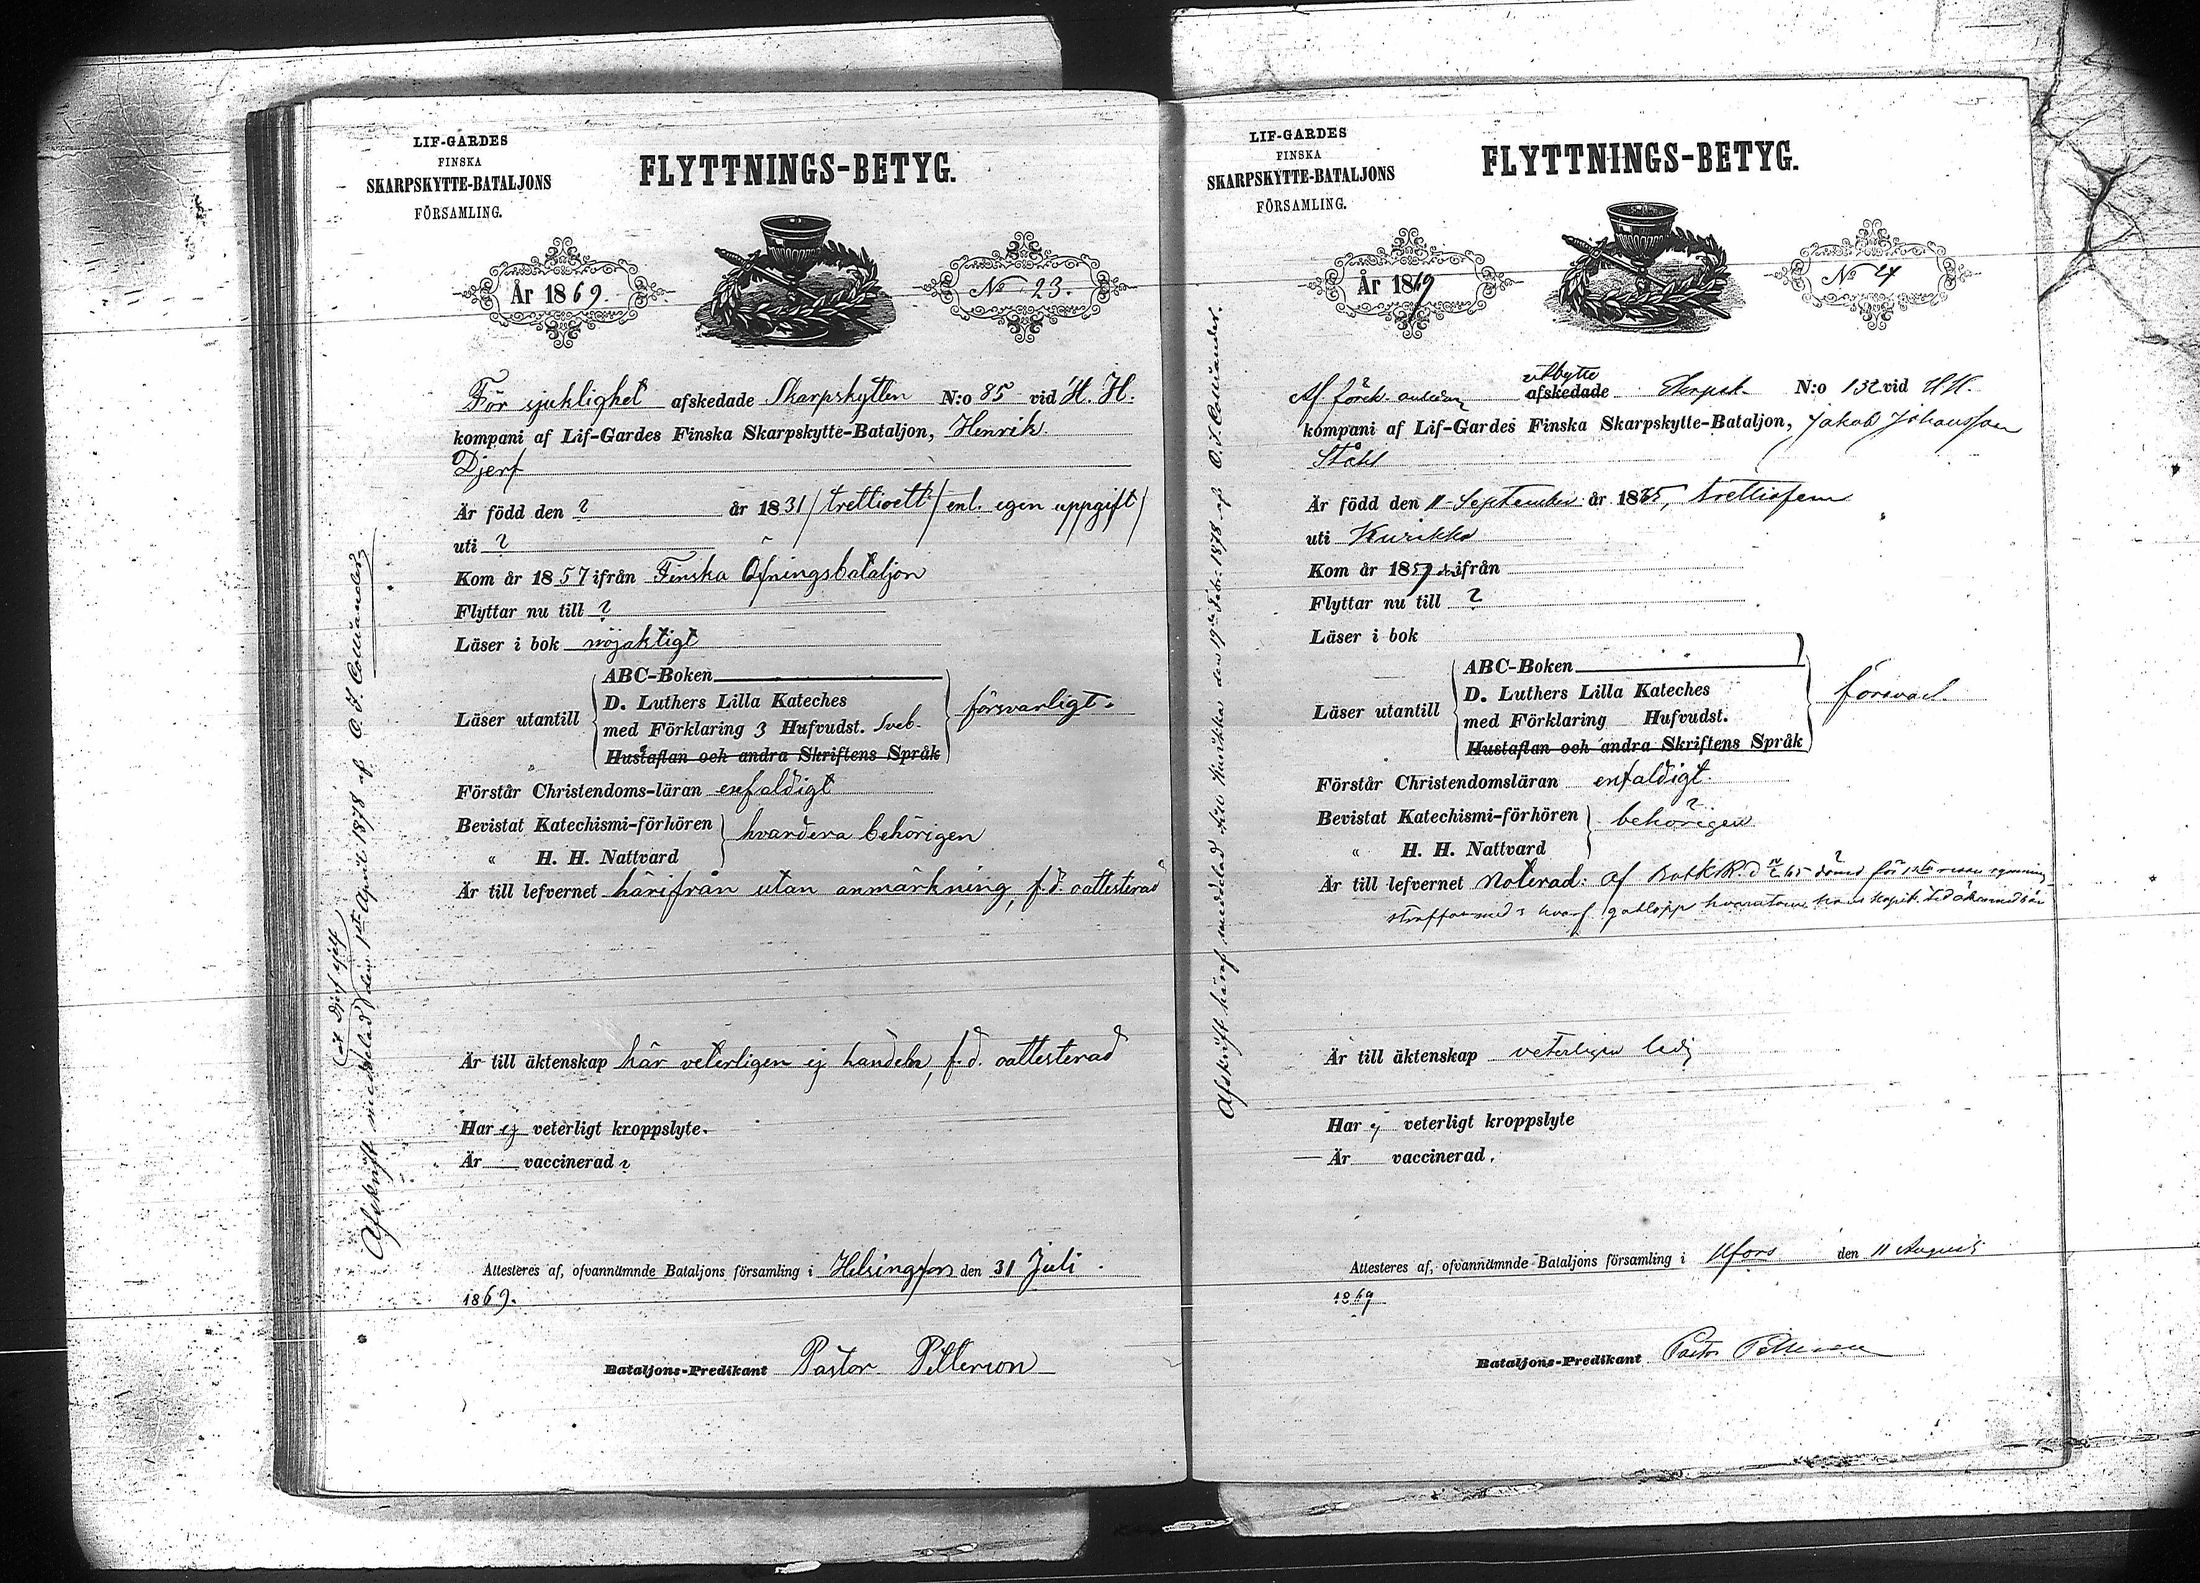 LIF-GARDES
FINSKA
SKARPSKYTTE-BATALJONS
FÖRSAMLING.
FLYTTNINGS-BETYG.
År 1869.
No 23.
För sjuklighet afskedade Skarpskytten N:o 85 vid H. H.
kompani af Lif-Gardes Finska Skarpskytte-Bataljon, Henrik
Djerf
Är född den ? år 1831 / trettioett / enl. egen uppgift /
uti ?
Kom år 1857 ifrån Finska Öfningsbataljon
Flyttar nu till ?
Läser i bok nöjaktigt
Läser utantill
ABC-Boken
D. Luthers Lilla Kateches
med Förklaring 3 Hufvudst. Sveb.
Hustaflan och andra Skriftens Språk
försvarligt.
Förstår Christendoms-läran enfaldigt
Bevistat Katechismi-förhören
" H. H. Nattvard
hvardera behörigen
Är till lefvernet härifrån utan anmärkning, f. d. oattesterad
Är till äktenskap här veterligen ej handeln, f. d. oattesterad
Har ej veterligt kroppslyte.
Är vaccinerad ?
Attesteres af, ofvannämnde Bataljons församling i Helsingfors den 31 Juli.
1869.
Bataljons-Predikant Pastor Petterson
Afskrift meddelad (åt Djerf sjelf) den 1ste April 1878 af O. I. Colliander
LIF-GARDES
FINSKA
SKARPSKYTTE-BATALJONS
FÖRSAMLING.
FLYTTNINGS-BETYG.
År 1869
No 24
utbytte
Af förek. afskedade Skrpsk. N:o 132 vid HH.
kompani af Lif-Gardes Finska Skarpskytte-Bataljon, Jakob Johansson
Ståhl
Är född den 11 September år 1835, trettiofem
uti Kurikka
Kom år 1857 ifrån
Flyttar nu till ?
Läser i bok
Läser utantill
ABC-Boken
D. Luthers Lilla Kateches
med Förklaring Hufvudst.
Hustaflan och andra Skriftens Språk
försvarl.
Förstår Christendomsläran enfaldigt.
Bevistat Katechismi-förhören
" H. H. Nattvard
behörigen
Är till lefvernet Noterad: af dömd för 1sta resan rymning
straffat med 3 hvarf gatlopp hvarutom hans kapit. tid
Är till äktenskap veterligen ledig
Har ej veterligt kroppslyte
Är vaccinerad.
Attesteres af, ofvannämnde Bataljons församling i Hfors den 11 Augusti
1869
Bataljons-Predikant Pastor Petterson
Afskrift häraf meddelad från Kurikka den 19de Febr. 1878 af O. I. Colliander.